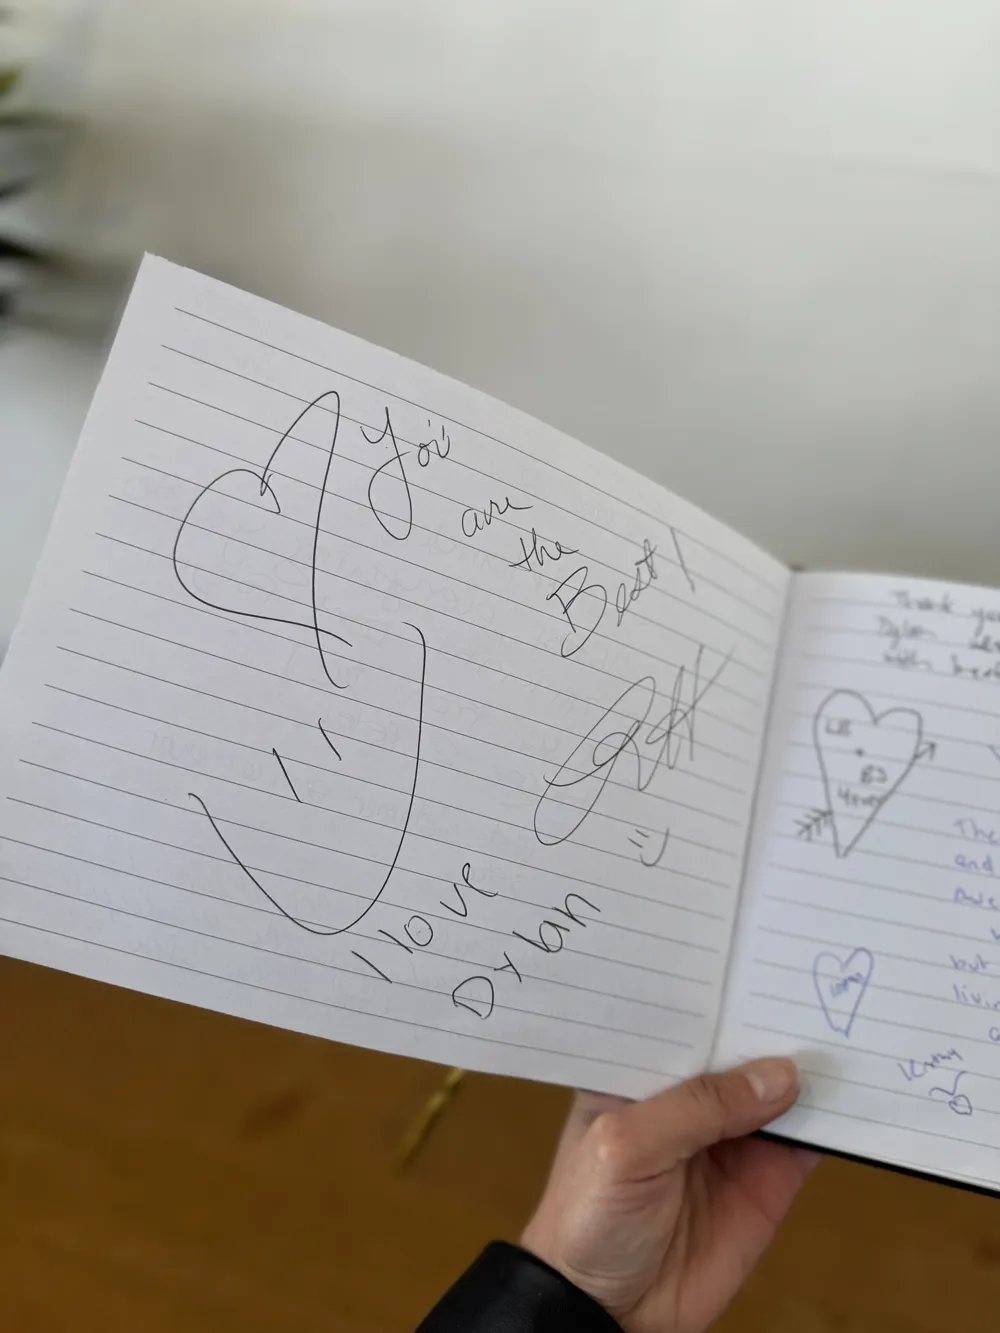 You
are
the
Best!
I love
Dylan
Thank you
Dylan
with
LB
+
BJ
4ever
The
and
but
livi
Kathy